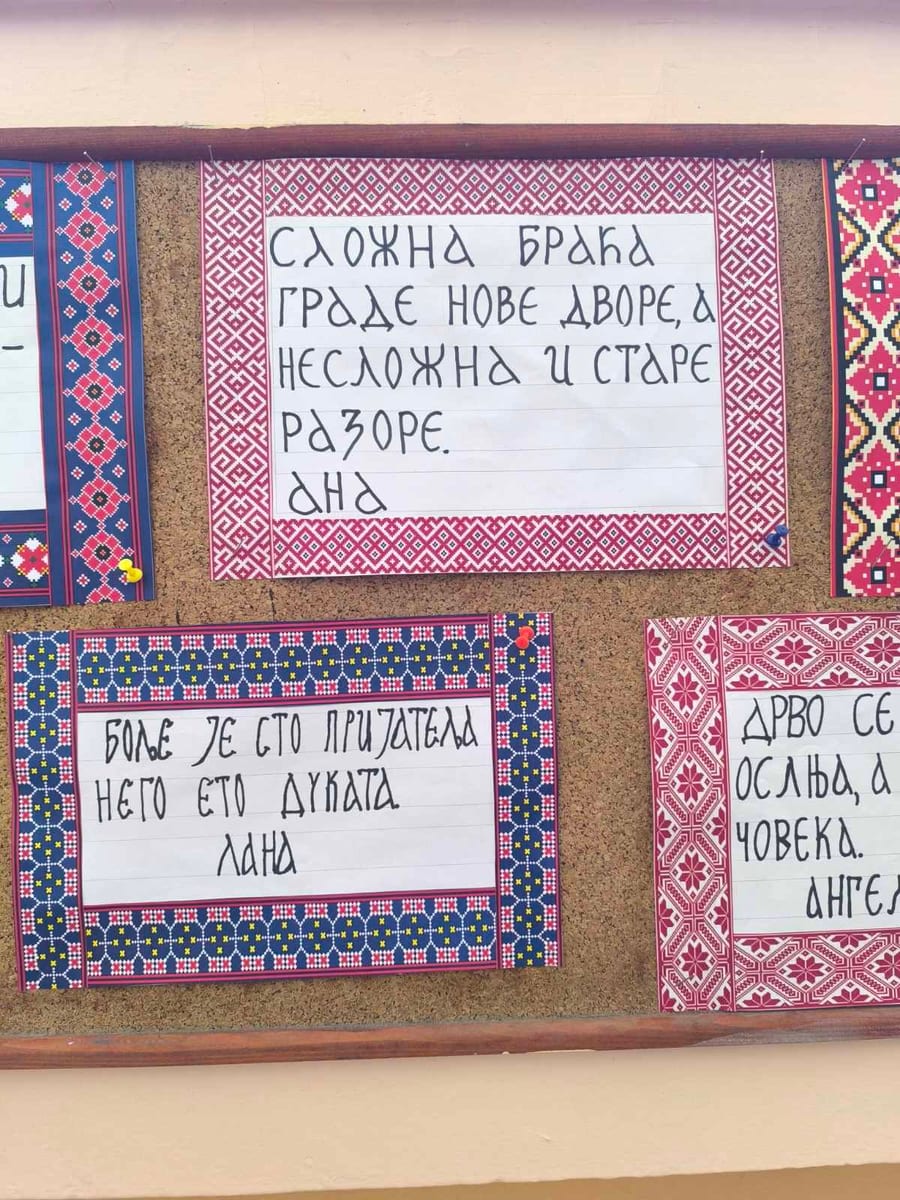 И
-
СЛОЖНА БРАЋА
ГРАДЕ НОВЕ ДВОРЕ, А
НЕСЛОЖНА И СТАРЕ
РАЗОРЕ.
АНА
БОЉЕ ЈЕ СТО ПРИЈАТЕЉА
НЕГО СТО ДУКАТА
ЛАНА
ДРВО СЕ
ОСЛЊА, А
ЧОВЕКА.
АНГЕЛ